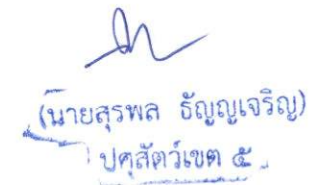 (นายสุรพล ธัญญเจริญ)
ปศุสัตว์เขต ๕